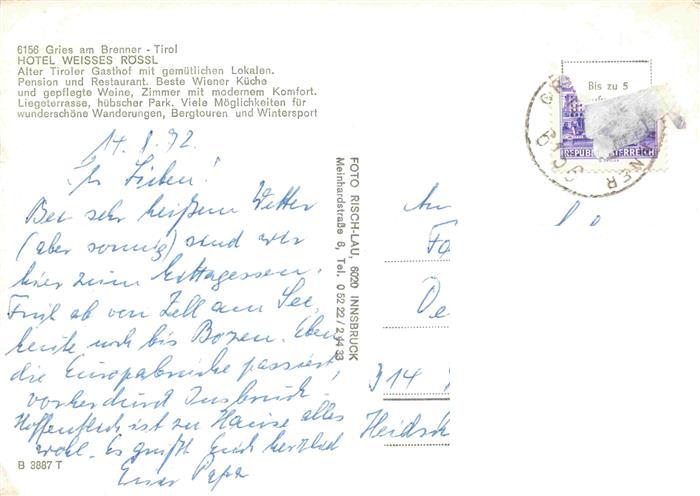 6156 Gries am Brenner - Tirol
HOTEL WEISSES RÖSSL
Alter Tiroler Gasthof mit gemütlichen Lokalen.
Pension und Restaurant. Beste Wiener Küche
und gepflegte Weine, Zimmer mit modernem Komfort.
Liegeterrasse, hübscher Park. Viele Möglichkeiten für
wunderschöne Wanderungen, Bergtouren und Wintersport
14.8.72.
Ihr Lieben!
Bei sehr heißem Wetter
(aber sonnig) sind wir
hier zum Mittagessen.
Früh ab von Zell am See,
heute noch bis Bozen. Eben
die Europabrücke passiert,
vorher durch Innsbruck.
Hoffentlich ist zu Hause alles
wohl. Es grüßt Euch herzlich
Euer Papa
B 3887 T
FOTO RISCH-LAU, 6020 INNSBRUCK
Meinhardstraße 6, Tel. 0 52 22 / 2 84 33
Bis zu 5
REPUBLIK ÖSTERREICH
An
Fa
De
314
Heidsch